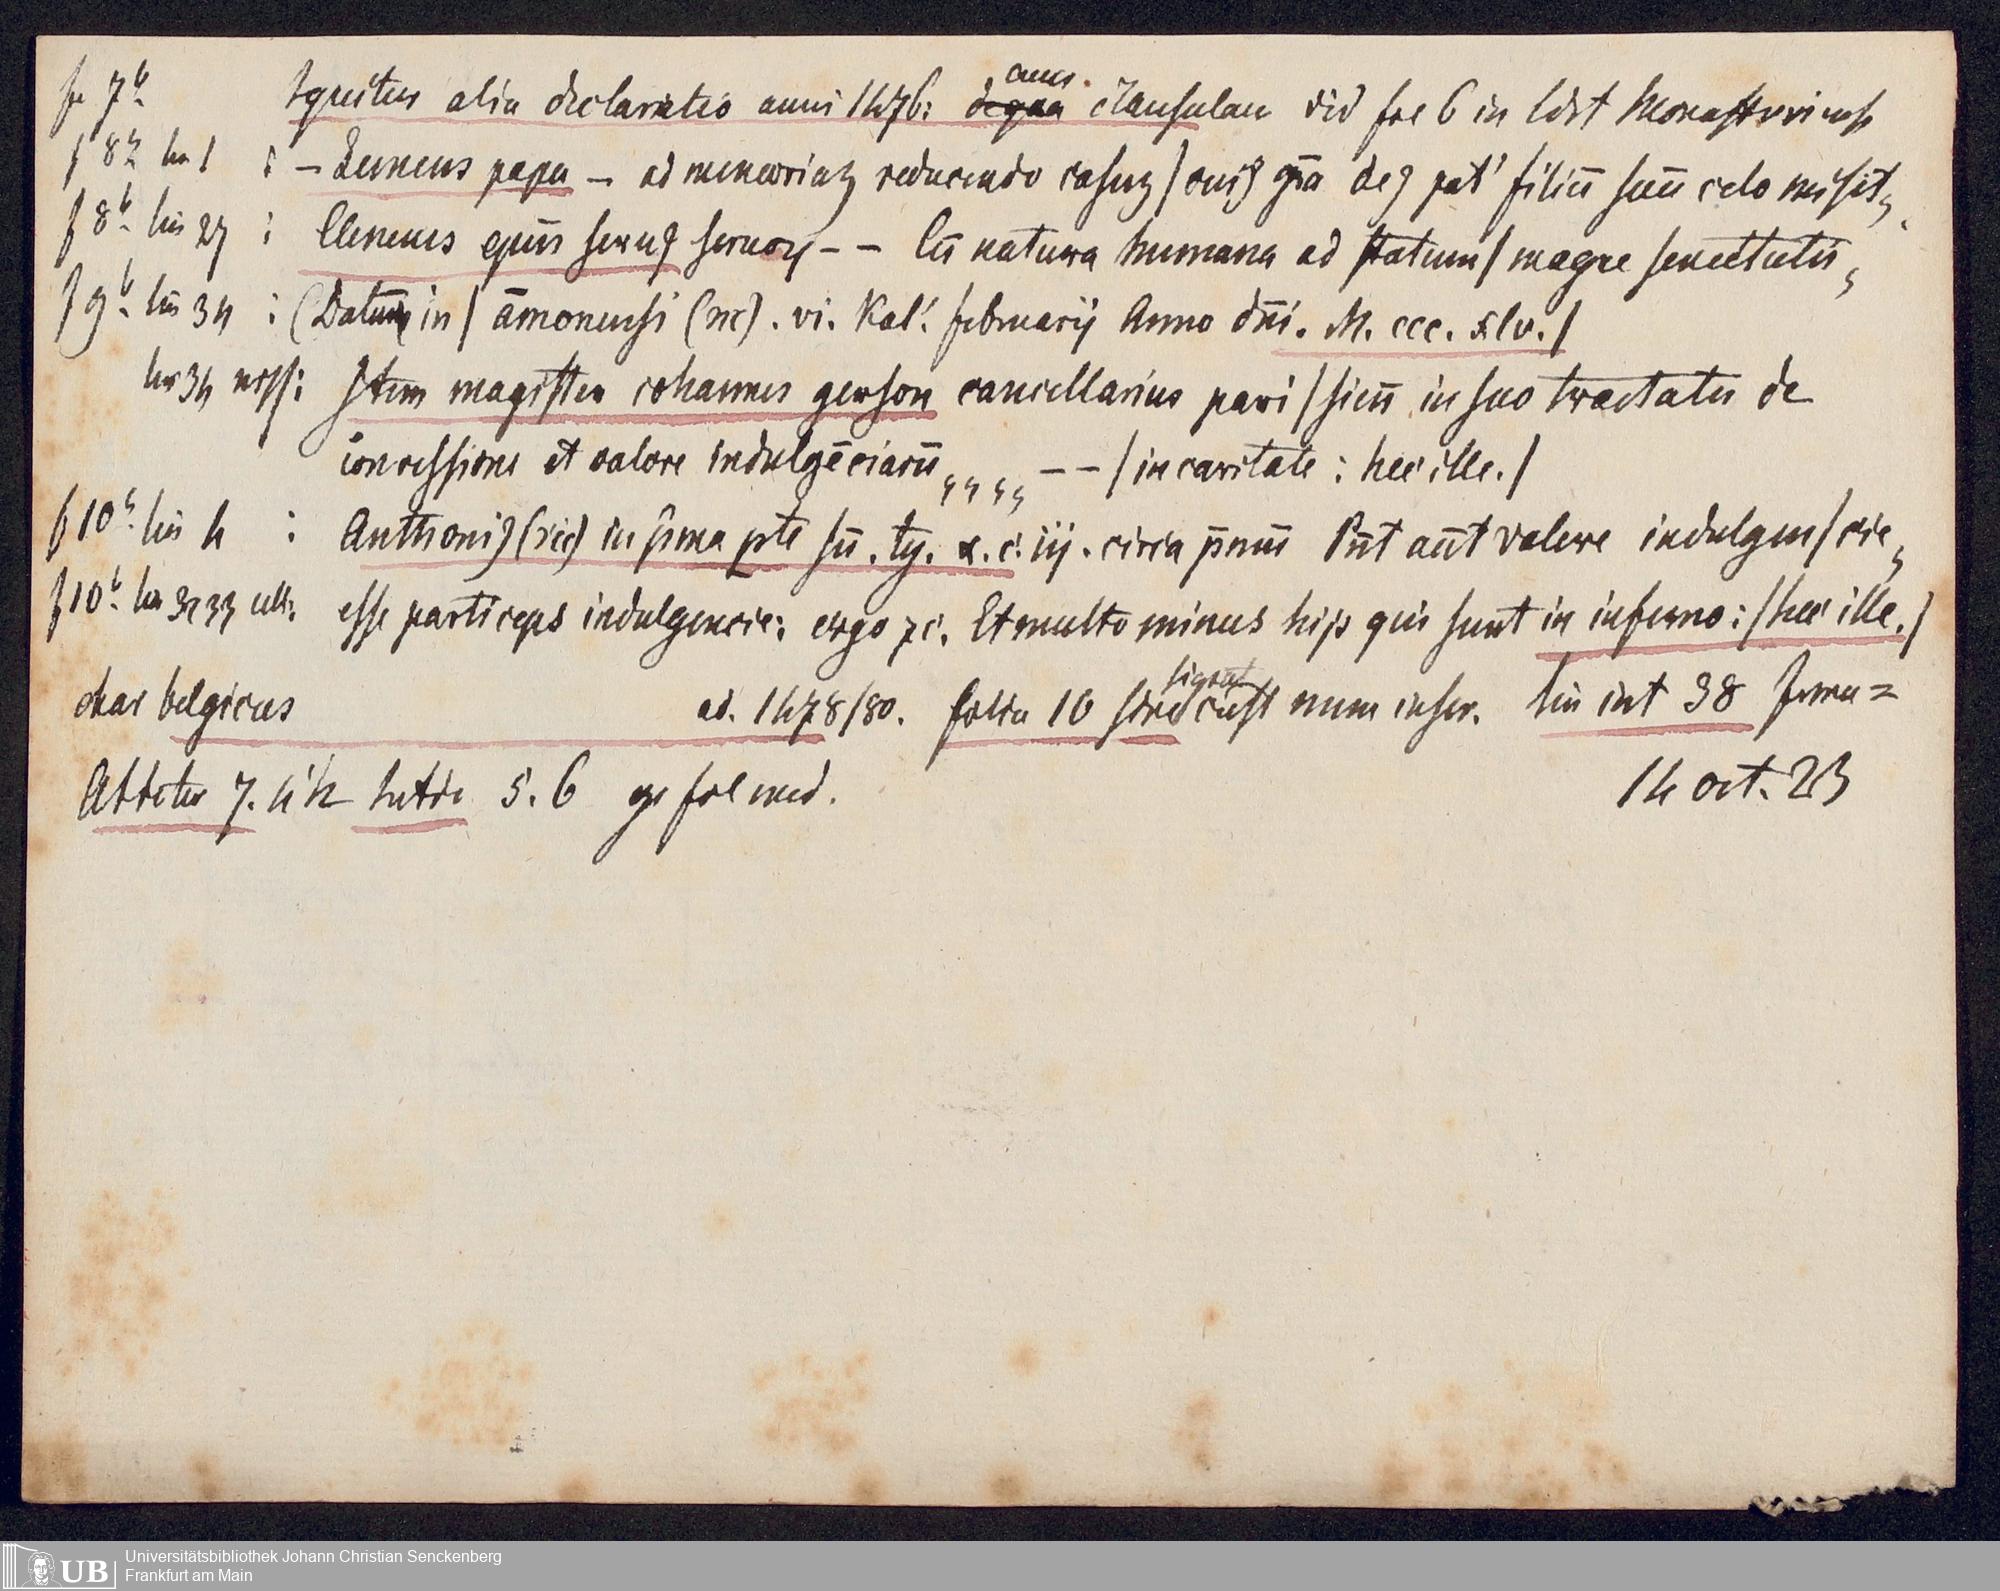 f 7b Sequitur alia declaratio anni 1476: clausulam vid fol 6 in
f 8a lin 1 : – Lemens papa – ad memoriaz reducendo casuz / cuiȝ gr̄a deȝ pat' filiū suū celo misit,,
f 8b. lin 27 : Clemens epūs seruȝ seruoꝝ – – Cū natura humana ad statum / magne senectutis,
f 9b. lin 34 : (Datum in / āmonensi (sic) . vi. Kal'. februarij Anno dn̄i. M. ccc. xlv. /
lin 34 Item magister iohannes gerson cancellarius pari / sieñ in suo tractatu de
concessione et valore indulgēciarū ,, ,, – – / in caritate : hec ille. /
f 10a. lin 4 : Anthoniȝ (sic) in p̄ma pte sū . ty. x. c. iij . circa p̄nm̄ Pn̄t aūt valere indulgen / cie,
f 10b. lin 32 33 ult: esse particeps indulgencie: ergo ⁊c. Et multo minus hijs qui sunt in inferno: / hec ille. /
char belgicus ad. 1478/80. folia 10 sine sign cust num inscr. lin int 38
7. 5. 6 fol med. 14 oct. 23
Universitätsbibliothek Johann Christian Senckenberg
UB Frankfurt am Main